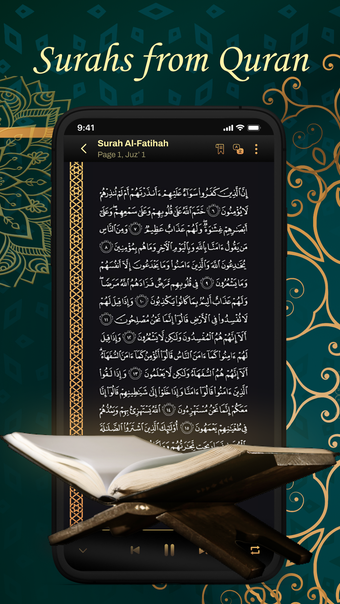 Surahs from Quran
9:41
Surah Al-Fatihah
Page 1, Juz' 1
إِنَّ ٱلَّذِينَ كَفَرُوا۟ سَوَآءٌ عَلَيْهِمْ ءَأَنذَرْتَهُمْ أَمْ لَمْ تُنذِرْهُمْ
لَا يُؤْمِنُونَ ٦ خَتَمَ ٱللَّهُ عَلَىٰ قُلُوبِهِمْ وَعَلَىٰ سَمْعِهِمْ وَعَلَىٰٓ
أَبْصَٰرِهِمْ غِشَٰوَةٌ وَلَهُمْ عَذَابٌ عَظِيمٌ ٧ وَمِنَ ٱلنَّاسِ
مَن يَقُولُ ءَامَنَّا بِٱللَّهِ وَبِٱلْيَوْمِ ٱلْءَاخِرِ وَمَا هُم بِمُؤْمِنِينَ ٨
يُخَٰدِعُونَ ٱللَّهَ وَٱلَّذِينَ ءَامَنُوا۟ وَمَا يَخْدَعُونَ إِلَّآ أَنفُسَهُمْ
وَمَا يَشْعُرُونَ ٩ فِى قُلُوبِهِم مَّرَضٌ فَزَادَهُمُ ٱللَّهُ مَرَضًا
وَلَهُمْ عَذَابٌ أَلِيمٌۢ بِمَا كَانُوا۟ يَكْذِبُونَ ١٠ وَإِذَا قِيلَ لَهُمْ
لَا تُفْسِدُوا۟ فِى ٱلْأَرْضِ قَالُوٓا۟ إِنَّمَا نَحْنُ مُصْلِحُونَ ١١
أَلَآ إِنَّهُمْ هُمُ ٱلْمُفْسِدُونَ وَلَٰكِن لَّا يَشْعُرُونَ ١٢ وَإِذَا قِيلَ
لَهُمْ ءَامِنُوا۟ كَمَآ ءَامَنَ ٱلنَّاسُ قَالُوٓا۟ أَنُؤْمِنُ كَمَآ ءَامَنَ ٱلسُّفَهَآءُ
أَلَآ إِنَّهُمْ هُمُ ٱلسُّفَهَآءُ وَلَٰكِن لَّا يَعْلَمُونَ ١٣ وَإِذَا لَقُوا۟
ٱلَّذِينَ ءَامَنُوا۟ قَالُوٓا۟ ءَامَنَّا وَإِذَا خَلَوْا۟ إِلَىٰ شَيَٰطِينِهِمْ قَالُوٓا۟ إِنَّا
مَعَكُمْ إِنَّمَا نَحْنُ مُسْتَهْزِءُونَ ١٤ ٱللَّهُ يَسْتَهْزِئُ بِهِمْ وَيَمُدُّهُمْ
فِى طُغْيَٰنِهِمْ يَعْمَهُونَ ١٥ أُو۟لَٰٓئِكَ ٱلَّذِينَ ٱشْتَرَوُا۟ ٱلضَّلَٰلَةَ
رَبِحَت تِّجَٰرَتُهُمْ وَمَا